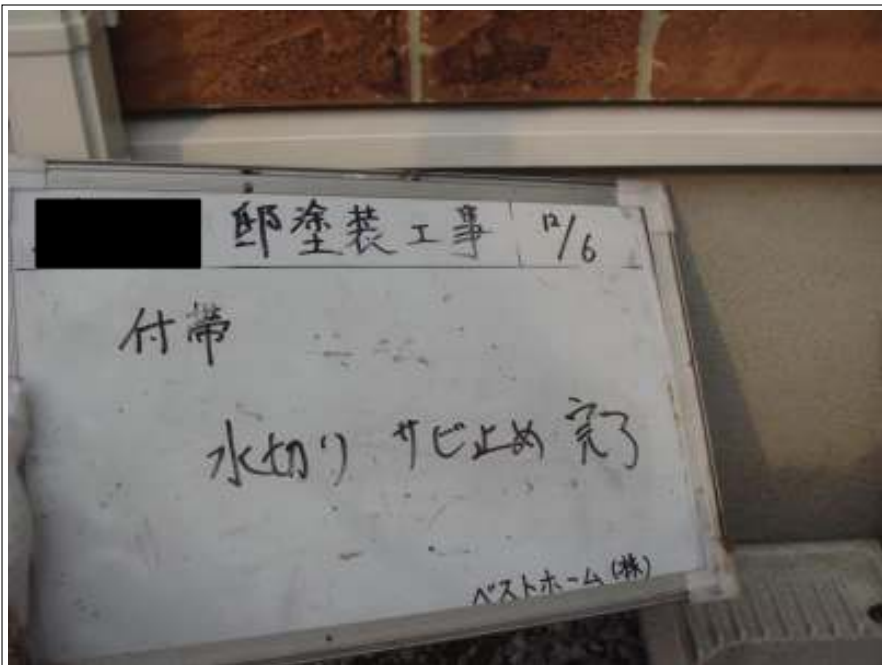 邸塗装工事 12/6
付帯
水切り サビ止め 完了
ベストホーム(株)